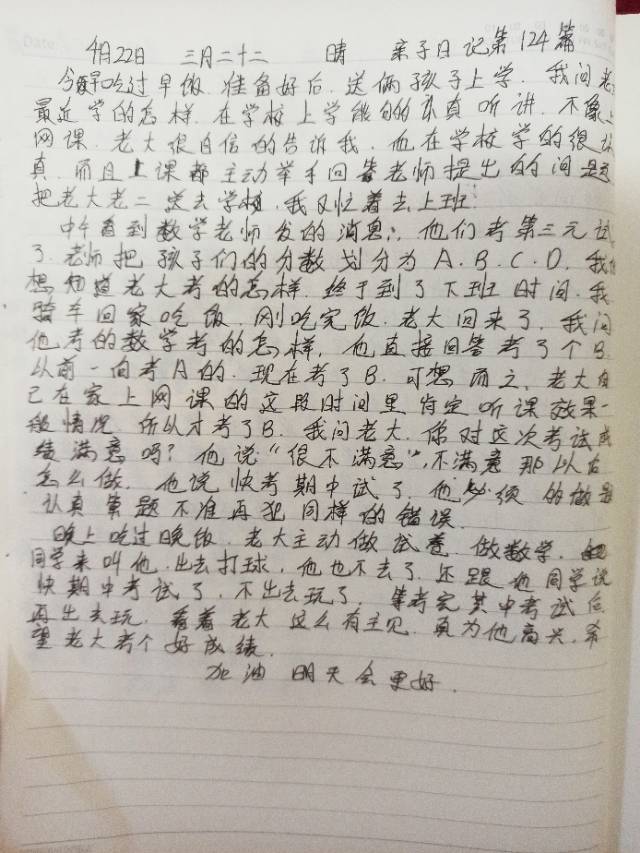 4月22日 三月二十二 晴 亲子日记第124篇
今早吃过早饭.准备好后.送俩孩子上学.我问老
最近学的怎样.在学校上学能的认真听讲.不像上
网课.老大很自信的告诉我.他在学校学的很认
真.而且上课都主动举手回答老师提出的问题
把老大老二送去学校.我又忙着去上班.
中午看到数学老师发的消息:他们考第三元试
了.老师把孩子们的分数划分为A.B.C.D.我
想知道老大考的怎样.终于到了下班时间.我
骑车回家吃饭.刚吃完饭.老大回来了.我问
他考的数学考的怎样,他直接回答考了个B.
从前一向考A的.现在考了B.可想而之.老大自
己在家上网课的这段时间里肯定听课效果一
般情况.所以才考了B.我问老大.你对这次考试成
绩满意吗?他说“很不满意”,不满意那以后
怎么做.他说快考期中试了.他必须的做是
认真审题不准再犯同样的错误.
晚上吃过晚饭.老大主动做试卷.做数学.
同学来叫他.出去打球,他也不去了.还跟他同学说
快期中考试了,不出去玩了,等考完其中考试后
再出去玩.看着老大这么有主见.真为他高兴.希
望老大考个好成绩.
加油 明天会更好.